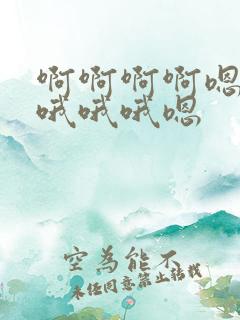 啊啊啊啊嗯
哦哦哦嗯
空為能不
未经同意禁止转载